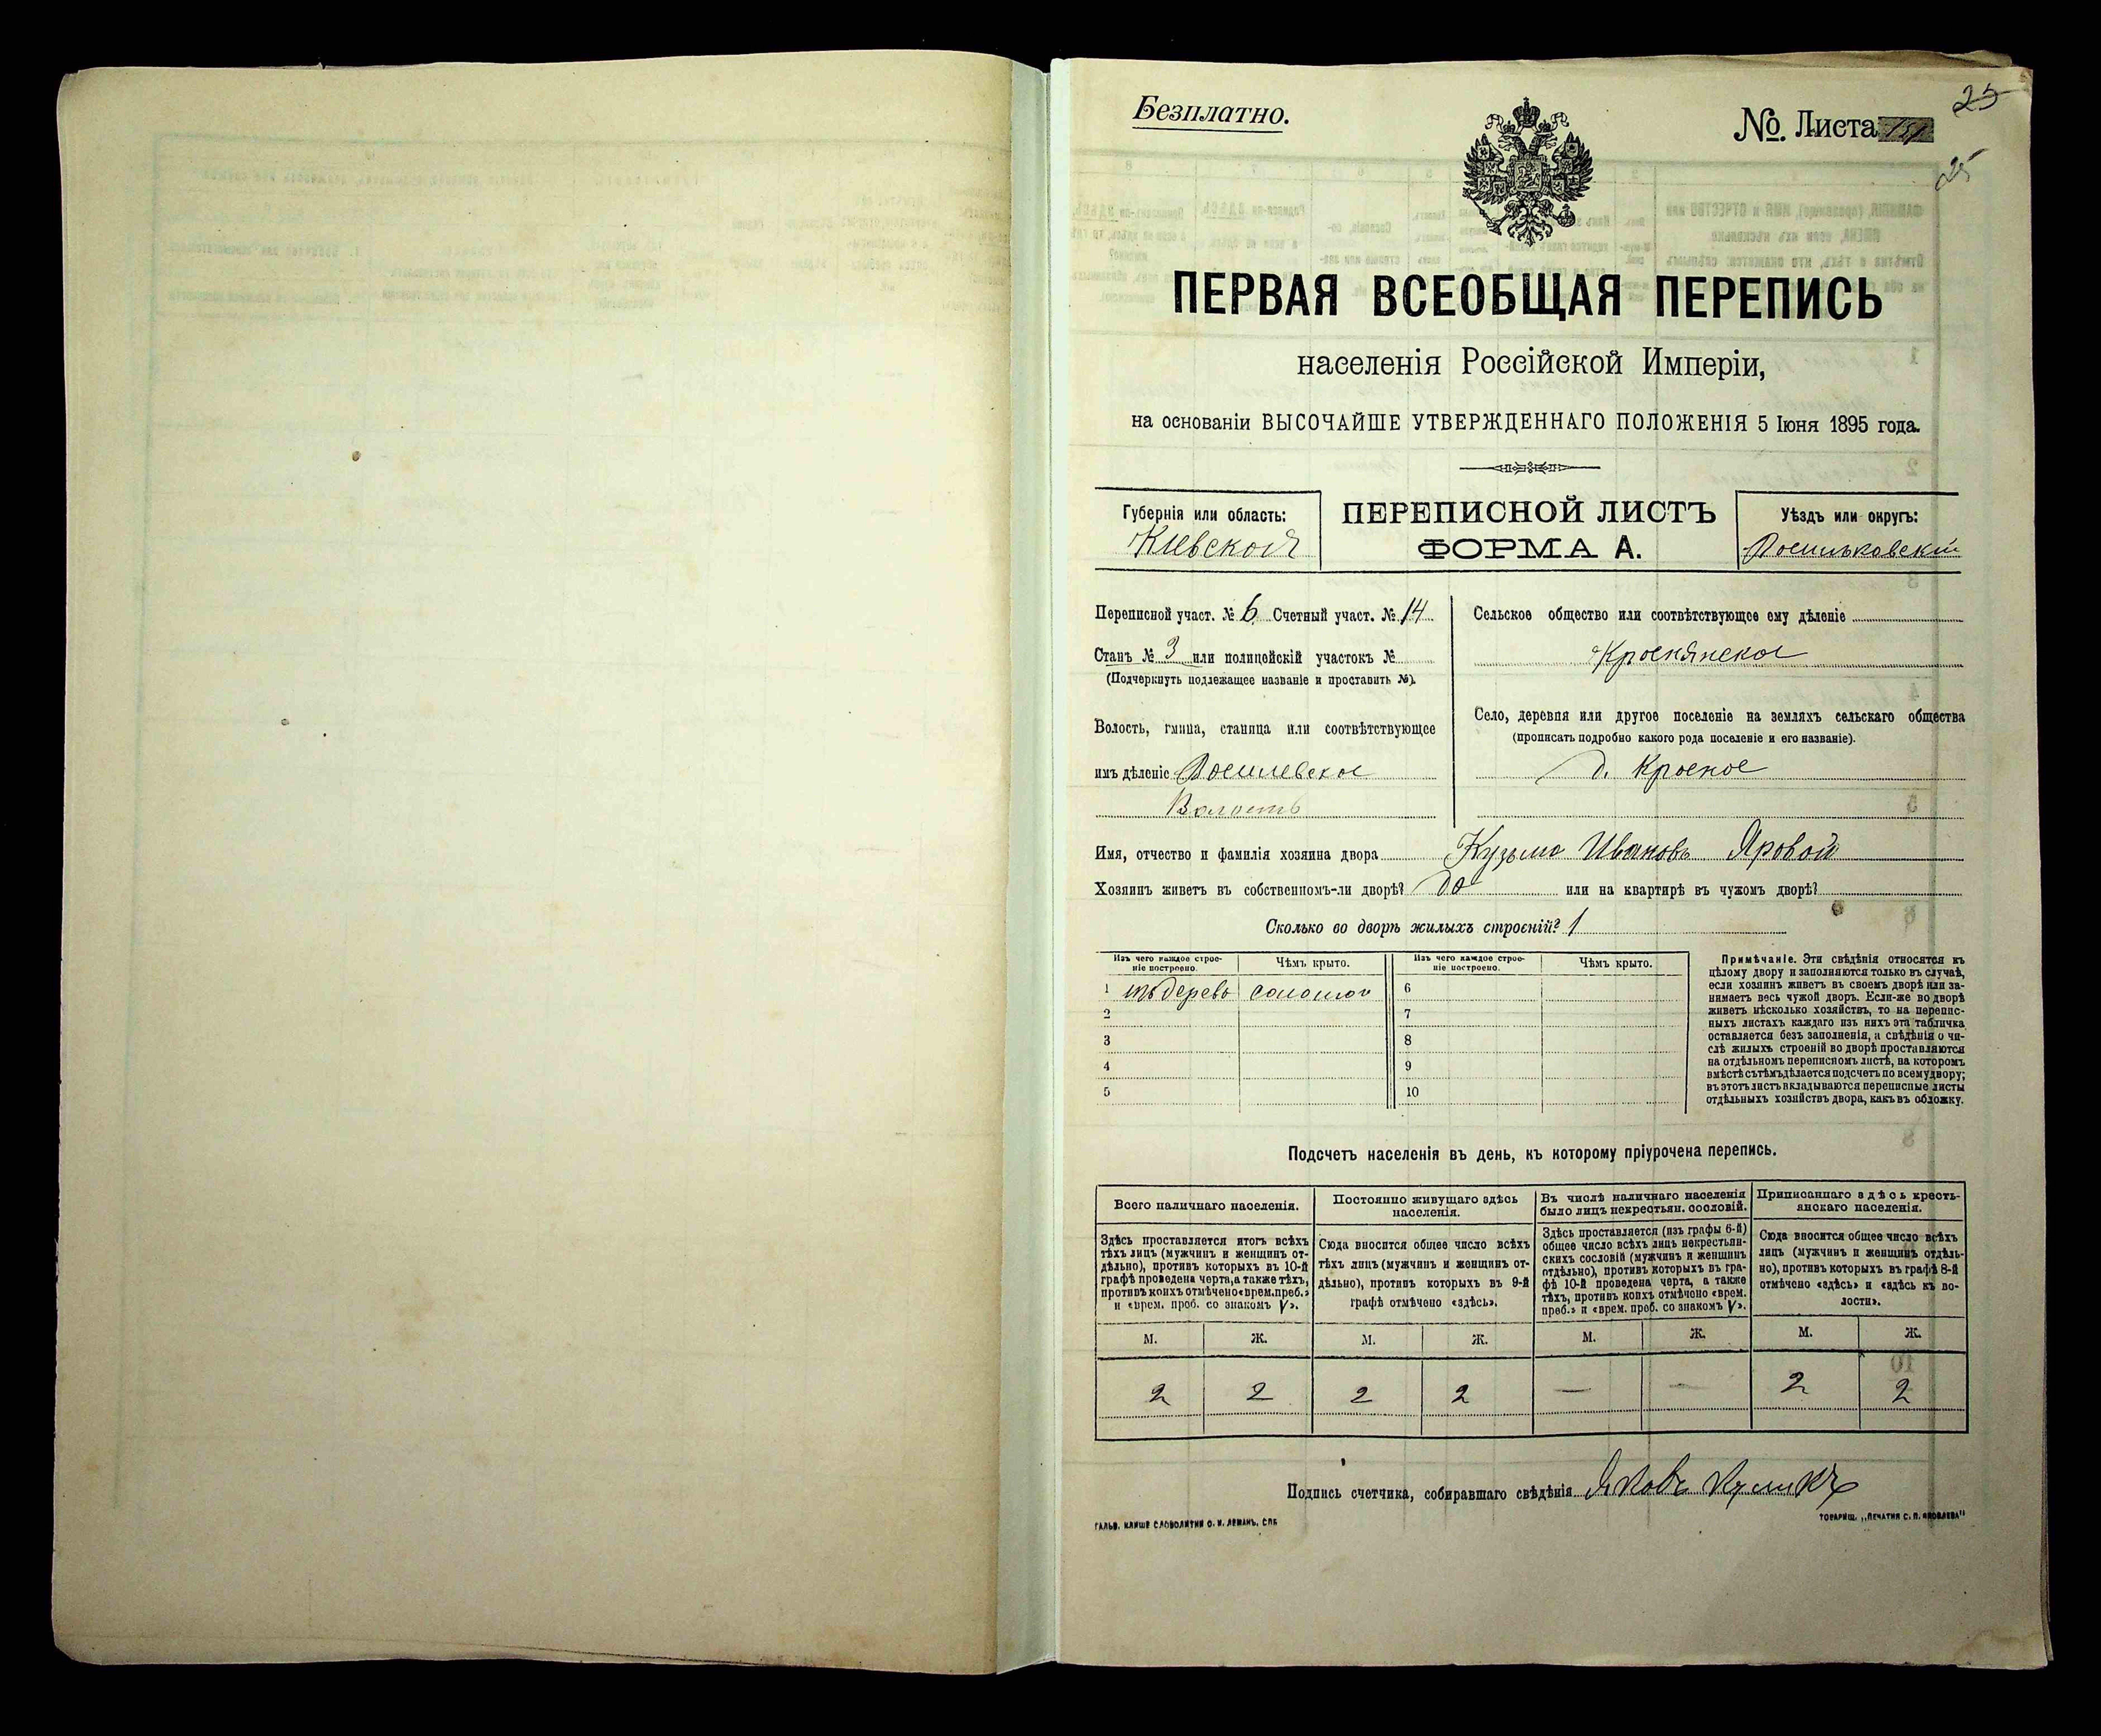 Безплатно.
№ Листа 151
25
25
ПЕРВАЯ ВСЕОБЩАЯ ПЕРЕПИСЬ
населенія Россійской Имперіи,
на основаніи ВЫСОЧАЙШЕ УТВЕРЖДЕННАГО ПОЛОЖЕНІЯ 5 Іюня 1895 года.
Губернія или область:
Кіевская
ПЕРЕПИСНОЙ ЛИСТЪ
ФОРМА А.
Уѣздъ или округъ:
Васильковскій
Переписной участ. № 6 Счетный участ. № 14
Станъ № 3 или полицейскій участокъ №
(Подчеркнуть подлежащее названіе и проставить №).
Волость, гмина, станица или соотвѣтствующее
имъ дѣленіе Васильевская
Волость
Сельское общество или соотвѣтствующее ему дѣленіе
Краснянское
Село, деревня или другое поселеніе на земляхъ сельскаго общества
(прописать подробно какого рода поселеніе и его названіе).
д. Красное
Имя, отчество и фамилія хозяина двора Кузьма Ивановъ Яровой
Хозяинъ живетъ въ собственномъ-ли дворѣ? да или на квартирѣ въ чужомъ дворѣ?
Сколько во дворѣ жилыхъ строеній? 1
Изъ чего каждое строе-
ніе построено.
Чѣмъ крыто.
Изъ чего каждое строе-
ніе построено.
Чѣмъ крыто.
1 изъ дерева соломой 6
2 7
3 8
4 9
5 10
Примѣчаніе. Эти свѣдѣнія относятся къ
цѣлому двору и заполняются только въ случаѣ,
если хозяинъ живетъ въ своемъ дворѣ или за-
нимаетъ весь чужой дворъ. Если-же во дворѣ
живетъ нѣсколько хозяйствъ, то на перепис-
ныхъ листахъ каждаго изъ нихъ эта табличка
оставляется безъ заполненія, а свѣдѣнія о чи-
слѣ жилыхъ строеній во дворѣ проставляются
на отдѣльномъ переписномъ листѣ, на которомъ
вмѣстѣ съ тѣмъ дѣлается подсчетъ по всему двору;
въ этотъ листъ вкладываются переписные листы
отдѣльныхъ хозяйствъ двора, какъ въ обложку.
Подсчетъ населенія въ день, къ которому пріурочена перепись.
Всего наличнаго населенія.
Здѣсь проставляется итогъ всѣхъ
тѣхъ лицъ (мужчинъ и женщинъ от-
дѣльно), противъ которыхъ въ 10-й
графѣ проведена черта, а также тѣхъ,
противъ коихъ отмѣчено «врем. преб.»
и «врем. проб. со знакомъ V».
Постоянно живущаго здѣсь
населенія.
Сюда вносится общее число всѣхъ
тѣхъ лицъ (мужчинъ и женщинъ от-
дѣльно), противъ которыхъ въ 9-й
графѣ отмѣчено «здѣсь».
Въ числѣ наличнаго населенія
было лицъ некрестьян. сословій.
Здѣсь проставляется (изъ графы 6-й)
общее число всѣхъ лицъ некрестьян-
скихъ сословій (мужчинъ и женщинъ
отдѣльно), противъ которыхъ въ гра-
фѣ 10-й проведена черта, а также
тѣхъ, противъ коихъ отмѣчено «врем.
преб.» и «врем. преб. со знакомъ V».
Приписаннаго здѣсь кресть-
янскаго населенія.
Сюда вносится общее число всѣхъ
лицъ (мужчинъ и женщинъ отдѣль-
но), противъ которыхъ въ графѣ 8-й
отмѣчено «здѣсь» и «здѣсь къ во-
лости».
М. Ж. М. Ж. М. Ж. М. Ж.
2 2 2 2 — — 2 2
Подпись счетчика, собиравшаго свѣдѣнія Яковъ Куликъ
ГАЛЬВ. КЛИШЕ СЛОВОЛИТНИ О. И. ЛЕМАНЪ. СПБ
ТОВАРИЩ. „ПЕЧАТНЯ С. П. ЯКОВЛЕВА"